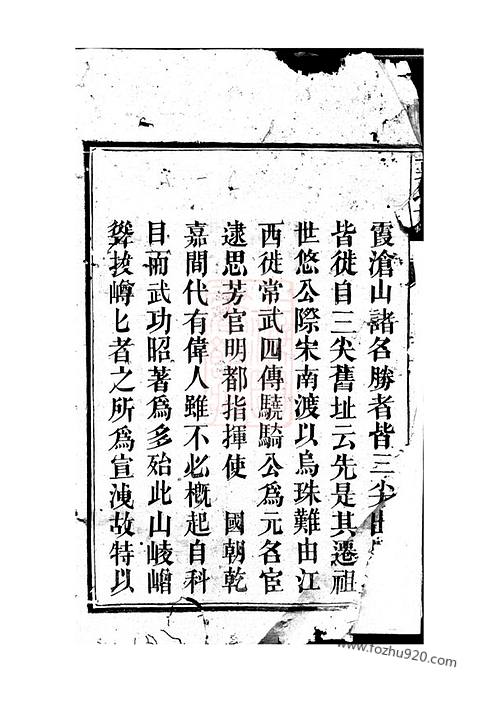 霞滄山諸名勝者皆三尖
皆徙自三尖舊址云先是其遷祖
世悠公際宋南渡以烏珠難由江
西徙常武四傳驍騎公為元名宦
逮思芳官明都指揮使　國朝乾
嘉間代有偉人雖不必概起自科
目而武功昭著為多殆此山崚嶒
聳拔嶟匕者之所為宣洩故特以
www.fozhu920.com